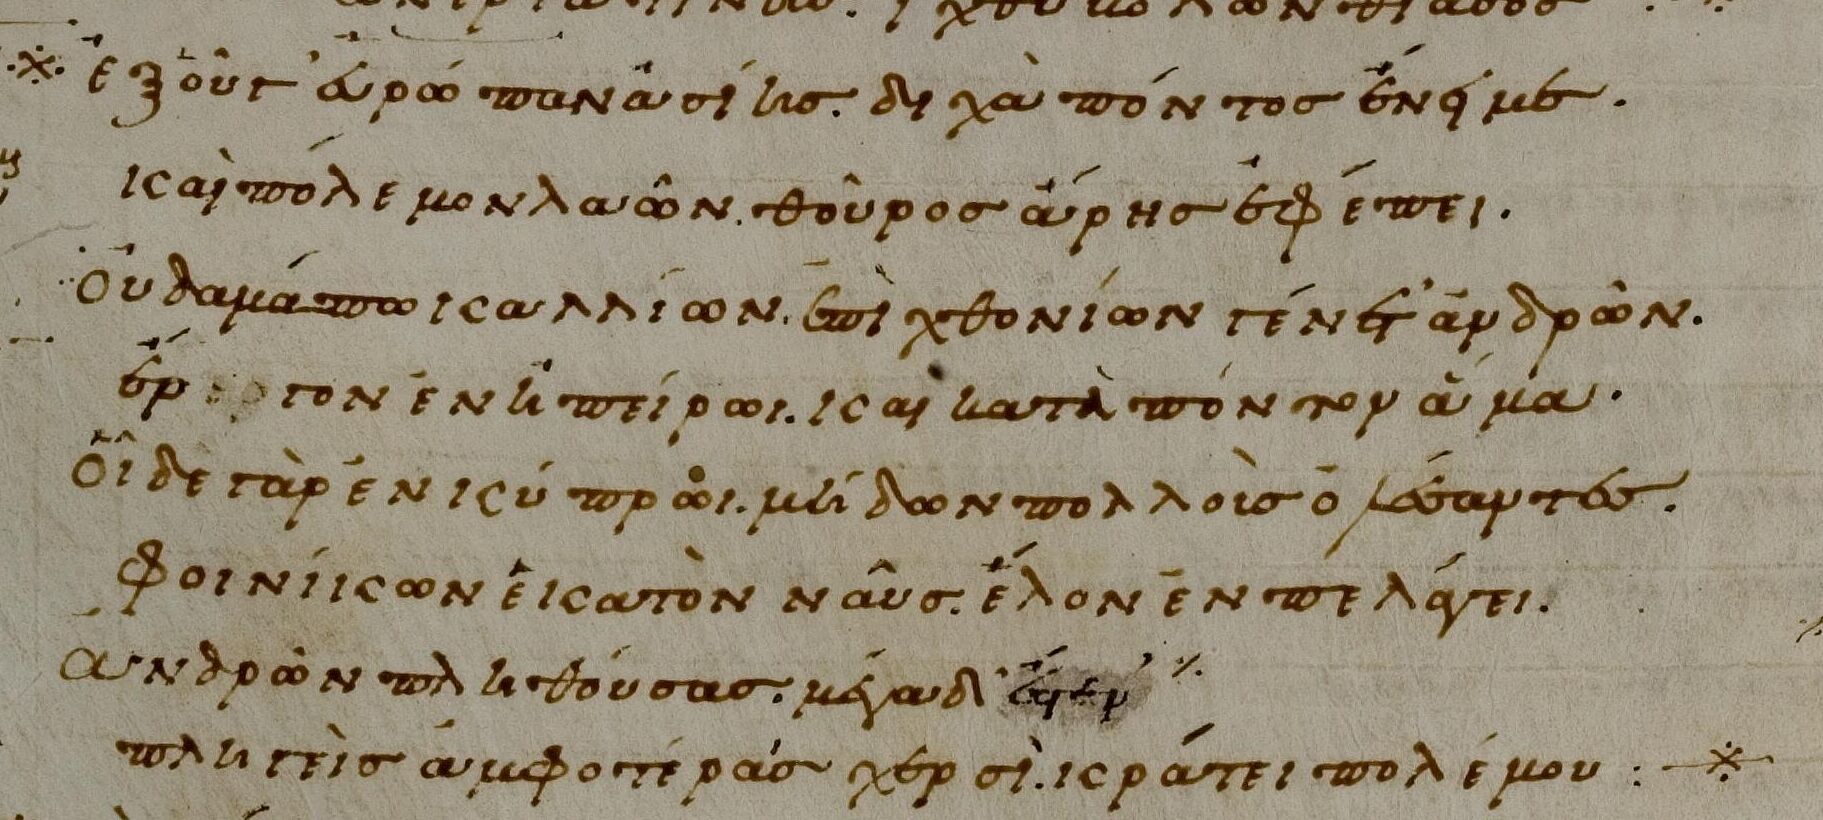 ἐξ οὗ γ' εὐρώπαν ἀσίης. δίχα πόντος ἔνειμε.
καὶ πόλεμον λαῶν. θοῦρος ἄρης ἐφέπει.
Οὐδαμά πω καλλίων. ἐπιχθονίων γένετ' ἀνδρῶν.
ἔργον ἐν ἠπείρωι. καὶ κατὰ πόντον ἅμα.
Οἵδε γὰρ ἐν κύπρωι. μήδων πολλοὺς ὀλέσαντες.
φοινίκων ἑκατὸν ναῦς. ἕλον ἐν πελάγει.
ἀνδρῶν πληθούσας. μέγα δ'
πληγεὶς ἀμφοτέραις χερσὶ. κράτει πολέμου :